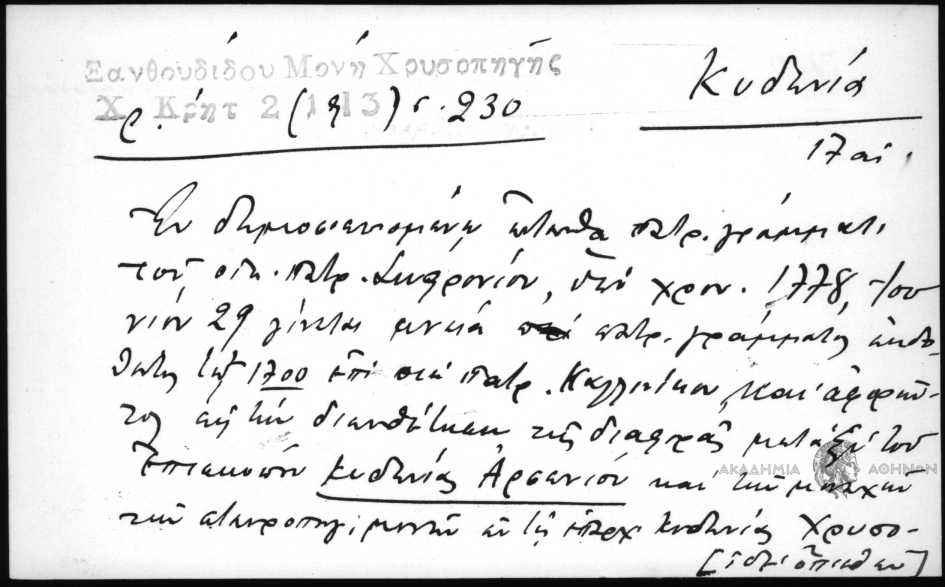 Ξανθουδίδου Μονή Χρυσοπηγής
Χ. Κρήτ 2 (1913) σ. 230
Κυδωνία
17 αι.
Ἐν δημοσιευομένῳ ἐνταῦθα πατρ. γράμματι
τοῦ οἰκ. πατρ. Σωφρονίου, ὑπό χρον. 1778, Ἰου
νίου 29 γίνεται μνεία πατρ. γράμματος ἐκδο
θέντος τῷ 1700 ἐπί πατρ. Καλλινίκου, καί ἀφορῶν-
τος εἰς τήν διευθέτησιν τῆς διαφορᾶς μεταξύ τοῦ
Ἐπισκόπου Κυδωνίας Ἀρσενίου καί τῶν μοναχῶν
τῆς σταυροπηγ. μονῆς ἐν τῇ ἐπαρχ Κυδωνίας Χρυσο-
[ἰδέ ὄπισθεν]
ΑΚΑΔΗΜΙΑ ΑΘΗΝΩΝ